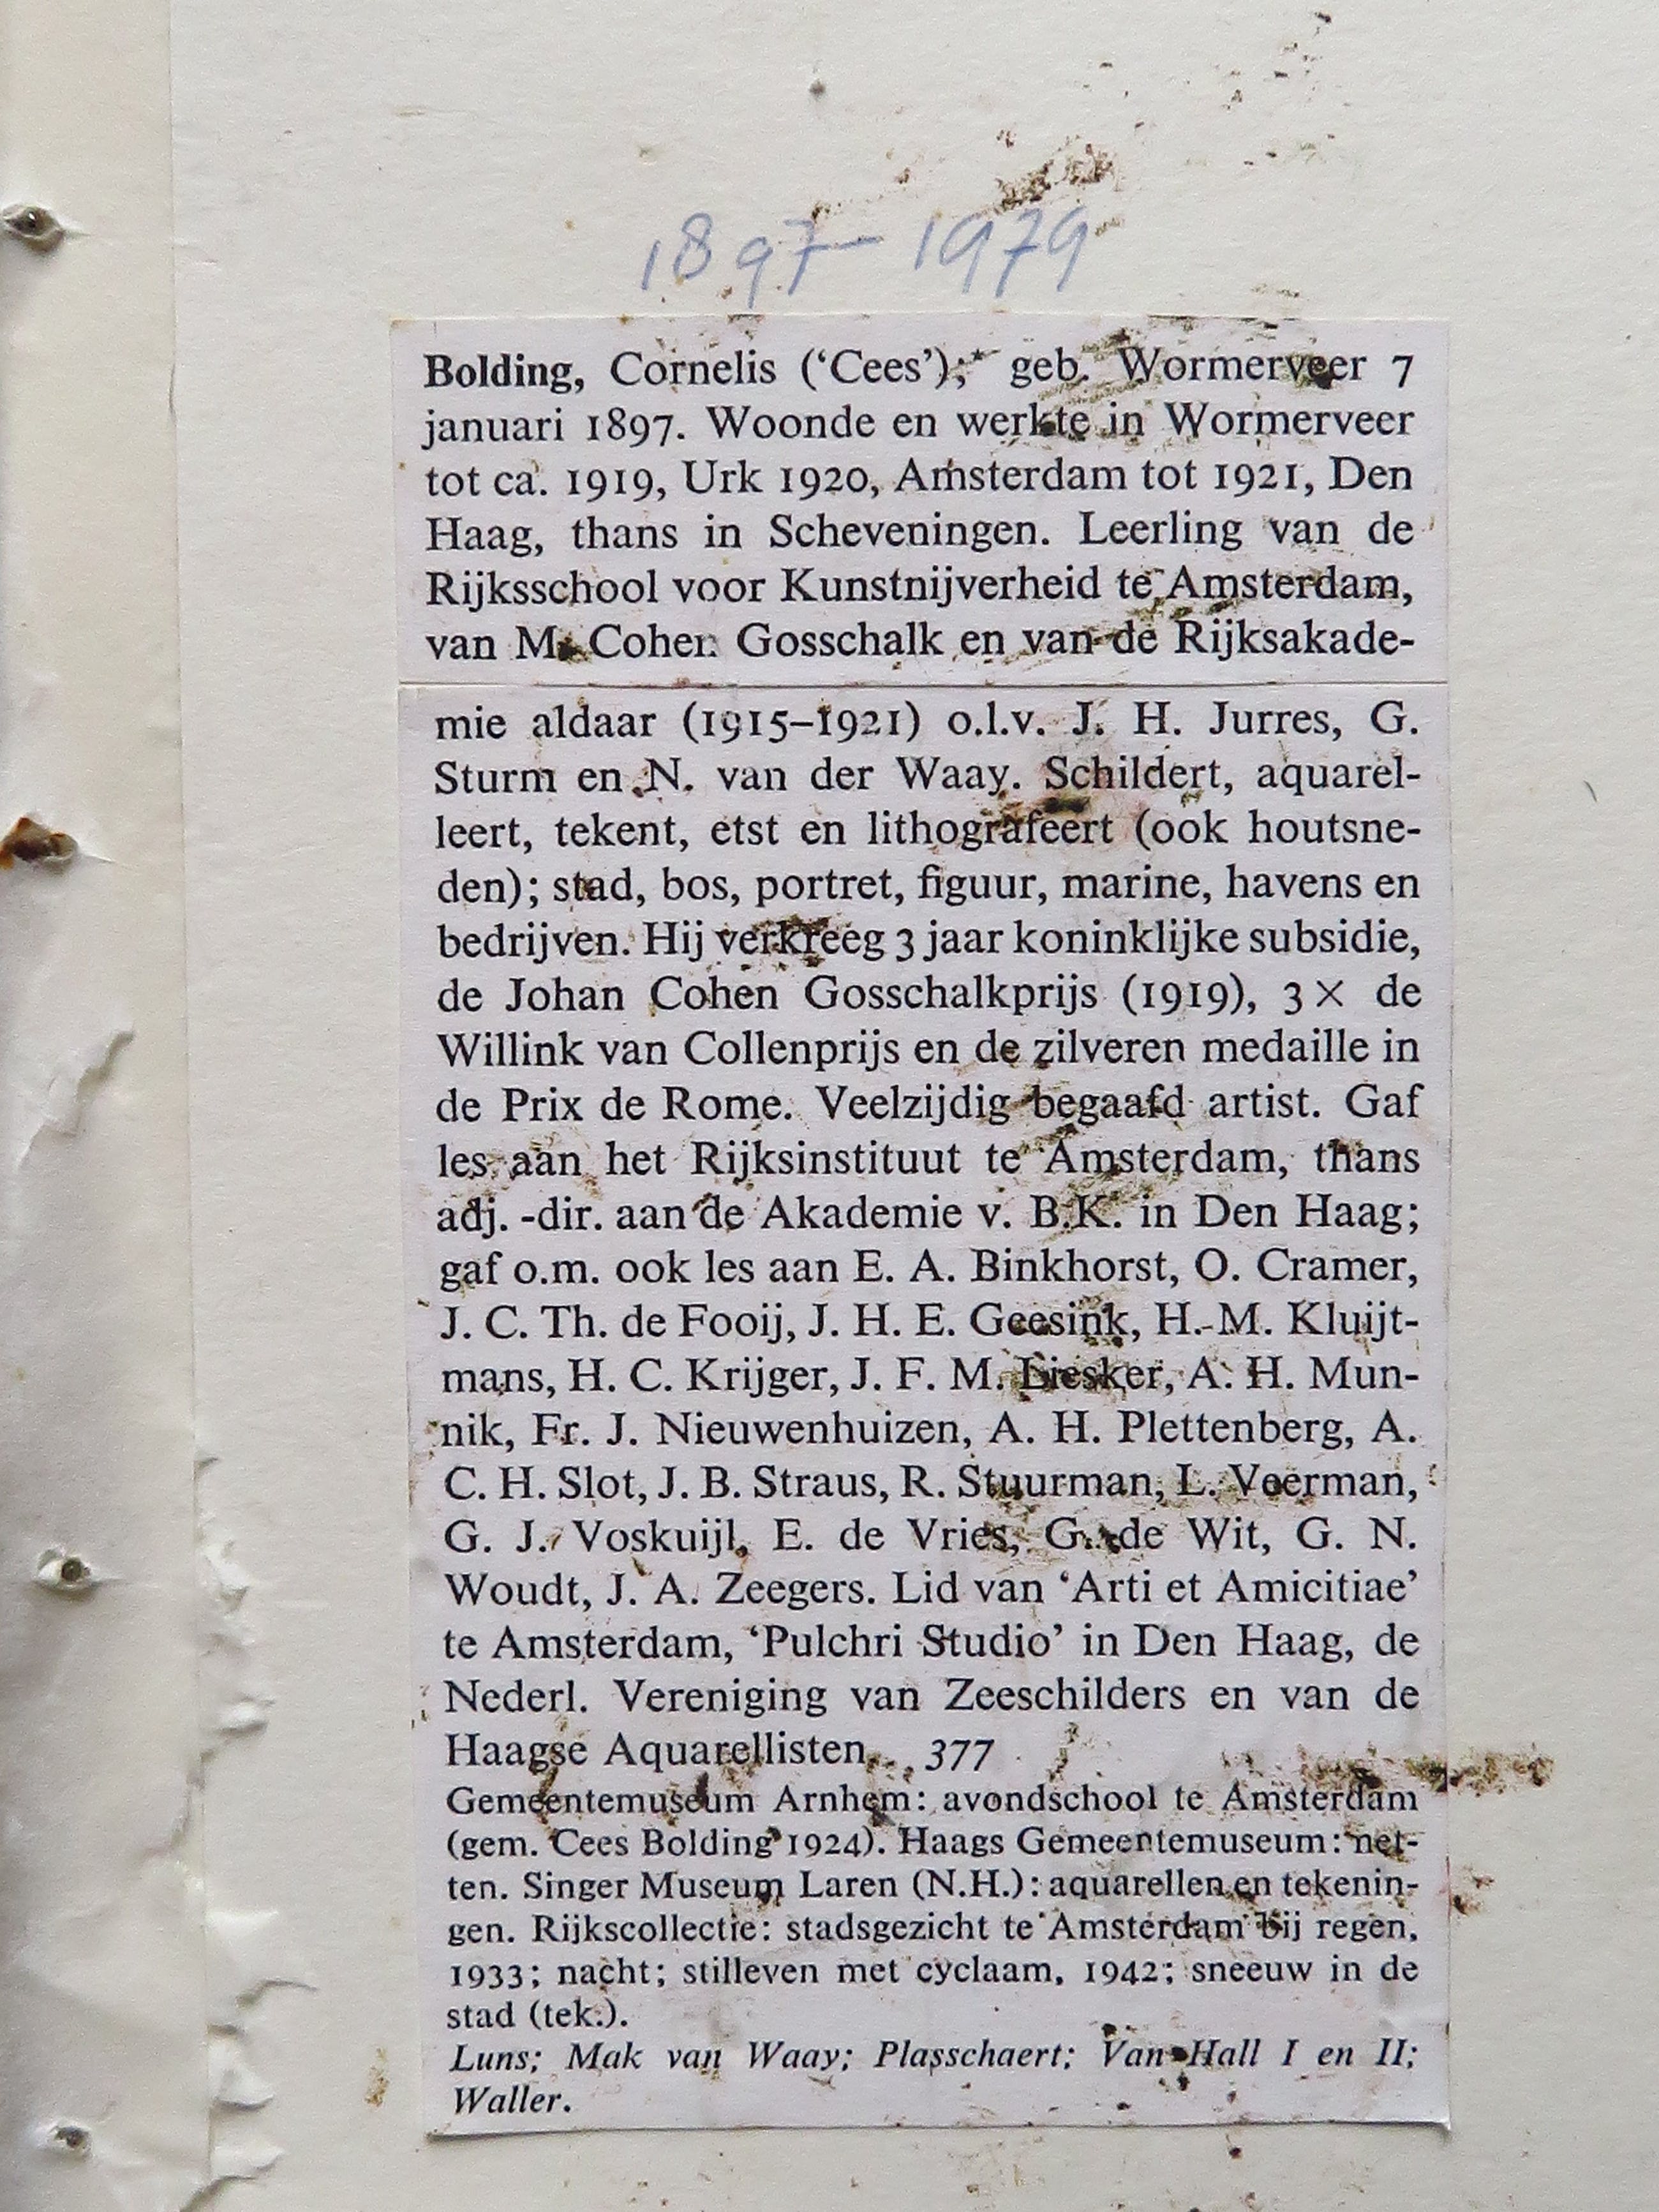 1897-1979
Bolding, Cornelis (‘Cees’);* geb. Wormerveer 7
januari 1897. Woonde en werkte in Wormerveer
tot ca. 1919, Urk 1920, Amsterdam tot 1921, Den
Haag, thans in Scheveningen. Leerling van de
Rijksschool voor Kunstnijverheid te Amsterdam,
van M. Cohen Gosschalk en van de Rijksakade-
mie aldaar (1915–1921) o.l.v. J. H. Jurres, G.
Sturm en N. van der Waay. Schildert, aquarel-
leert, tekent, etst en lithografeert (ook houtsne-
den); stad, bos, portret, figuur, marine, havens en
bedrijven. Hij verkreeg 3 jaar koninklijke subsidie,
de Johan Cohen Gosschalkprijs (1919), 3 × de
Willink van Collenprijs en de zilveren medaille in
de Prix de Rome. Veelzijdig begaafd artist. Gaf
les aan het Rijksinstituut te Amsterdam, thans
adj. -dir. aan de Akademie v. B.K. in Den Haag;
gaf o.m. ook les aan E. A. Binkhorst, O. Cramer,
J. C. Th. de Fooij, J. H. E. Geesink, H. M. Kluijt-
mans, H. C. Krijger, J. F. M. Liesker, A. H. Mun-
nik, Fr. J. Nieuwenhuizen, A. H. Plettenberg, A.
C. H. Slot, J. B. Straus, R. Stuurman, L. Veerman,
G. J. Voskuijl, E. de Vries, G. de Wit, G. N.
Woudt, J. A. Zeegers. Lid van ‘Arti et Amicitiae’
te Amsterdam, ‘Pulchri Studio’ in Den Haag, de
Nederl. Vereniging van Zeeschilders en van de
Haagse Aquarellisten. 377
Gemeentemuseum Arnhem: avondschool te Amsterdam
(gem. Cees Bolding 1924). Haags Gemeentemuseum: net-
ten. Singer Museum Laren (N.H.): aquarellen en tekenin-
gen. Rijkscollectie: stadsgezicht te Amsterdam bij regen,
1933; nacht; stilleven met cyclaam, 1942; sneeuw in de
stad (tek.).
Luns; Mak van Waay; Plasschaert; Van Hall I en II;
Waller.